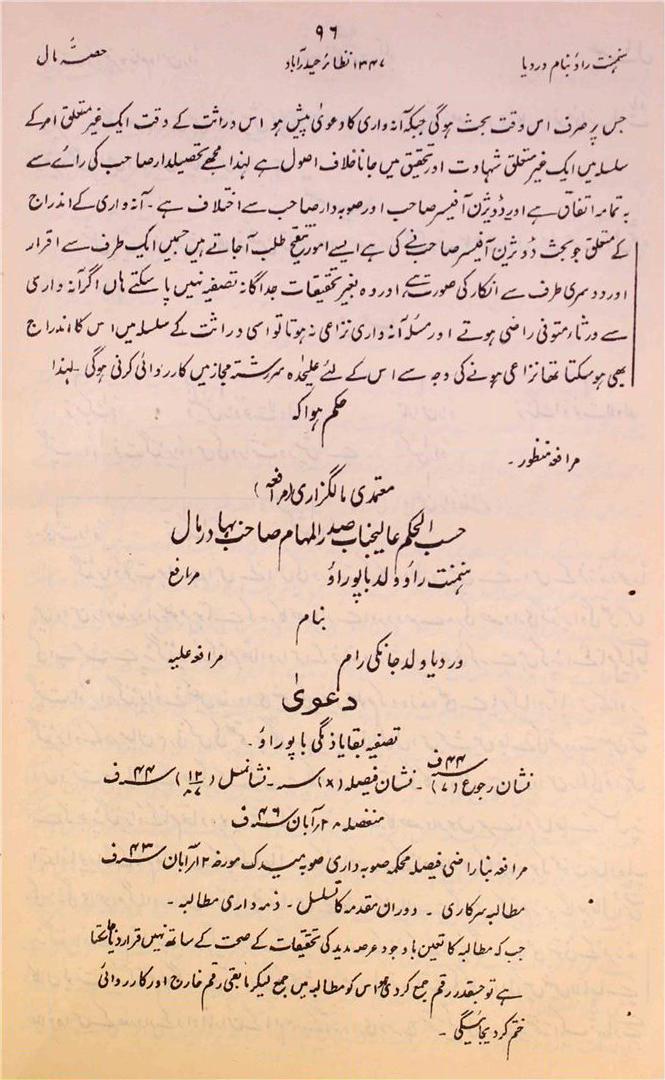 ۹۶
ہنمنت راؤ بنام وردیا ۱۳۴۷ نظائر حیدرآباد حصہ مال
جس پر صرف اس وقت بحث ہوگی جبکہ آنہ واری کا دعویٰ پیش ہو اس وراثت کے وقت ایک غیر متعلق امر کے
سلسلہ میں ایک غیر متعلق شہادت اور تحقیق میں جانا خلاف اصول ہے لہذا مجھے تحصیلدار صاحب کی رائے سے
بہ تمامہ اتفاق ہے اور ڈویژن آفیسر صاحب اور صوبہ دار صاحب سے اختلاف ہے۔ آنہ واری کے اندراج
کے متعلق جو بحث ڈویژن آفیسر صاحب نے کی ہے ایسے امور تنقیح طلب آجاتے ہیں جسمیں ایک طرف سے اقرار
اور دوسری طرف سے انکار کی صورت ہے اور وہ بغیر تحقیقات جداگانہ تصفیہ نہیں پا سکتے ہاں اگر آنہ واری
سے ورثاء متوفی راضی ہوتے اور مسئلہ آنہ واری نزاعی نہ ہوتا تو اسی وراثت کے سلسلہ میں اس کا اندراج
بھی ہو سکتا تھا نزاعی ہونے کی وجہ سے اس کے لئے علیحدہ سررشتہ مجاز میں کارروائی کرنی ہوگی۔ لہذا
حکم ہوا کہ
مرافعہ منظور۔
معتمدی مالگزاری (مرافعہ)
حسب الحکم عالیجناب صدر المہام صاحب بہادر مال
ہنمنت راؤ ولد باپوراؤ مرافع
بنام
وردیا ولد جانکی رام مرافعہ علیہ
دعویٰ
تصفیہ بقایا ذنگی باپوراؤ۔
نشان رجوع (۷) ۴۴ ف۔ نشان فیصلہ (۸) سنہ۔ نشان مسل (۱۲/۸۷) ۴۴ ف
منفصلہ ۲ آبان ۴۶ ف
مرافعہ بناراضی فیصلہ محکمہ صوبہ داری صوبہ میدک مورخہ ۲ آبان ۴۳ ف
مطالبہ سرکاری۔ دوران مقدمہ کا تسلسل۔ ذمہ داری مطالبہ۔
جب کہ مطالبہ کا تعین باوجود عرصہ مدید کی تحقیقات کے صحت کے ساتھ نہیں قرار دیا جا سکتا
ہے تو جسقدر رقم جمع کر دی گئی اس کو مطالبہ میں جمع لیکر مابقی رقم خارج اور کارروائی
ختم کر دیجائیگی۔